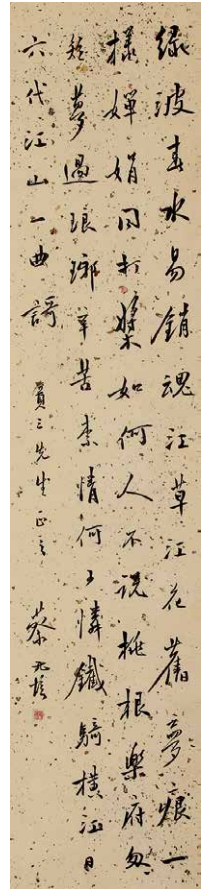 綠波春水易銷魂江草江花舊夢痕一
樣嬋娟同打槳如何人不說桃根樂府怱
翻夢過琅琊辛苦李情何了憐鐵騎橫江日
六代江山一曲歌
賓三先生正之
蔡元培